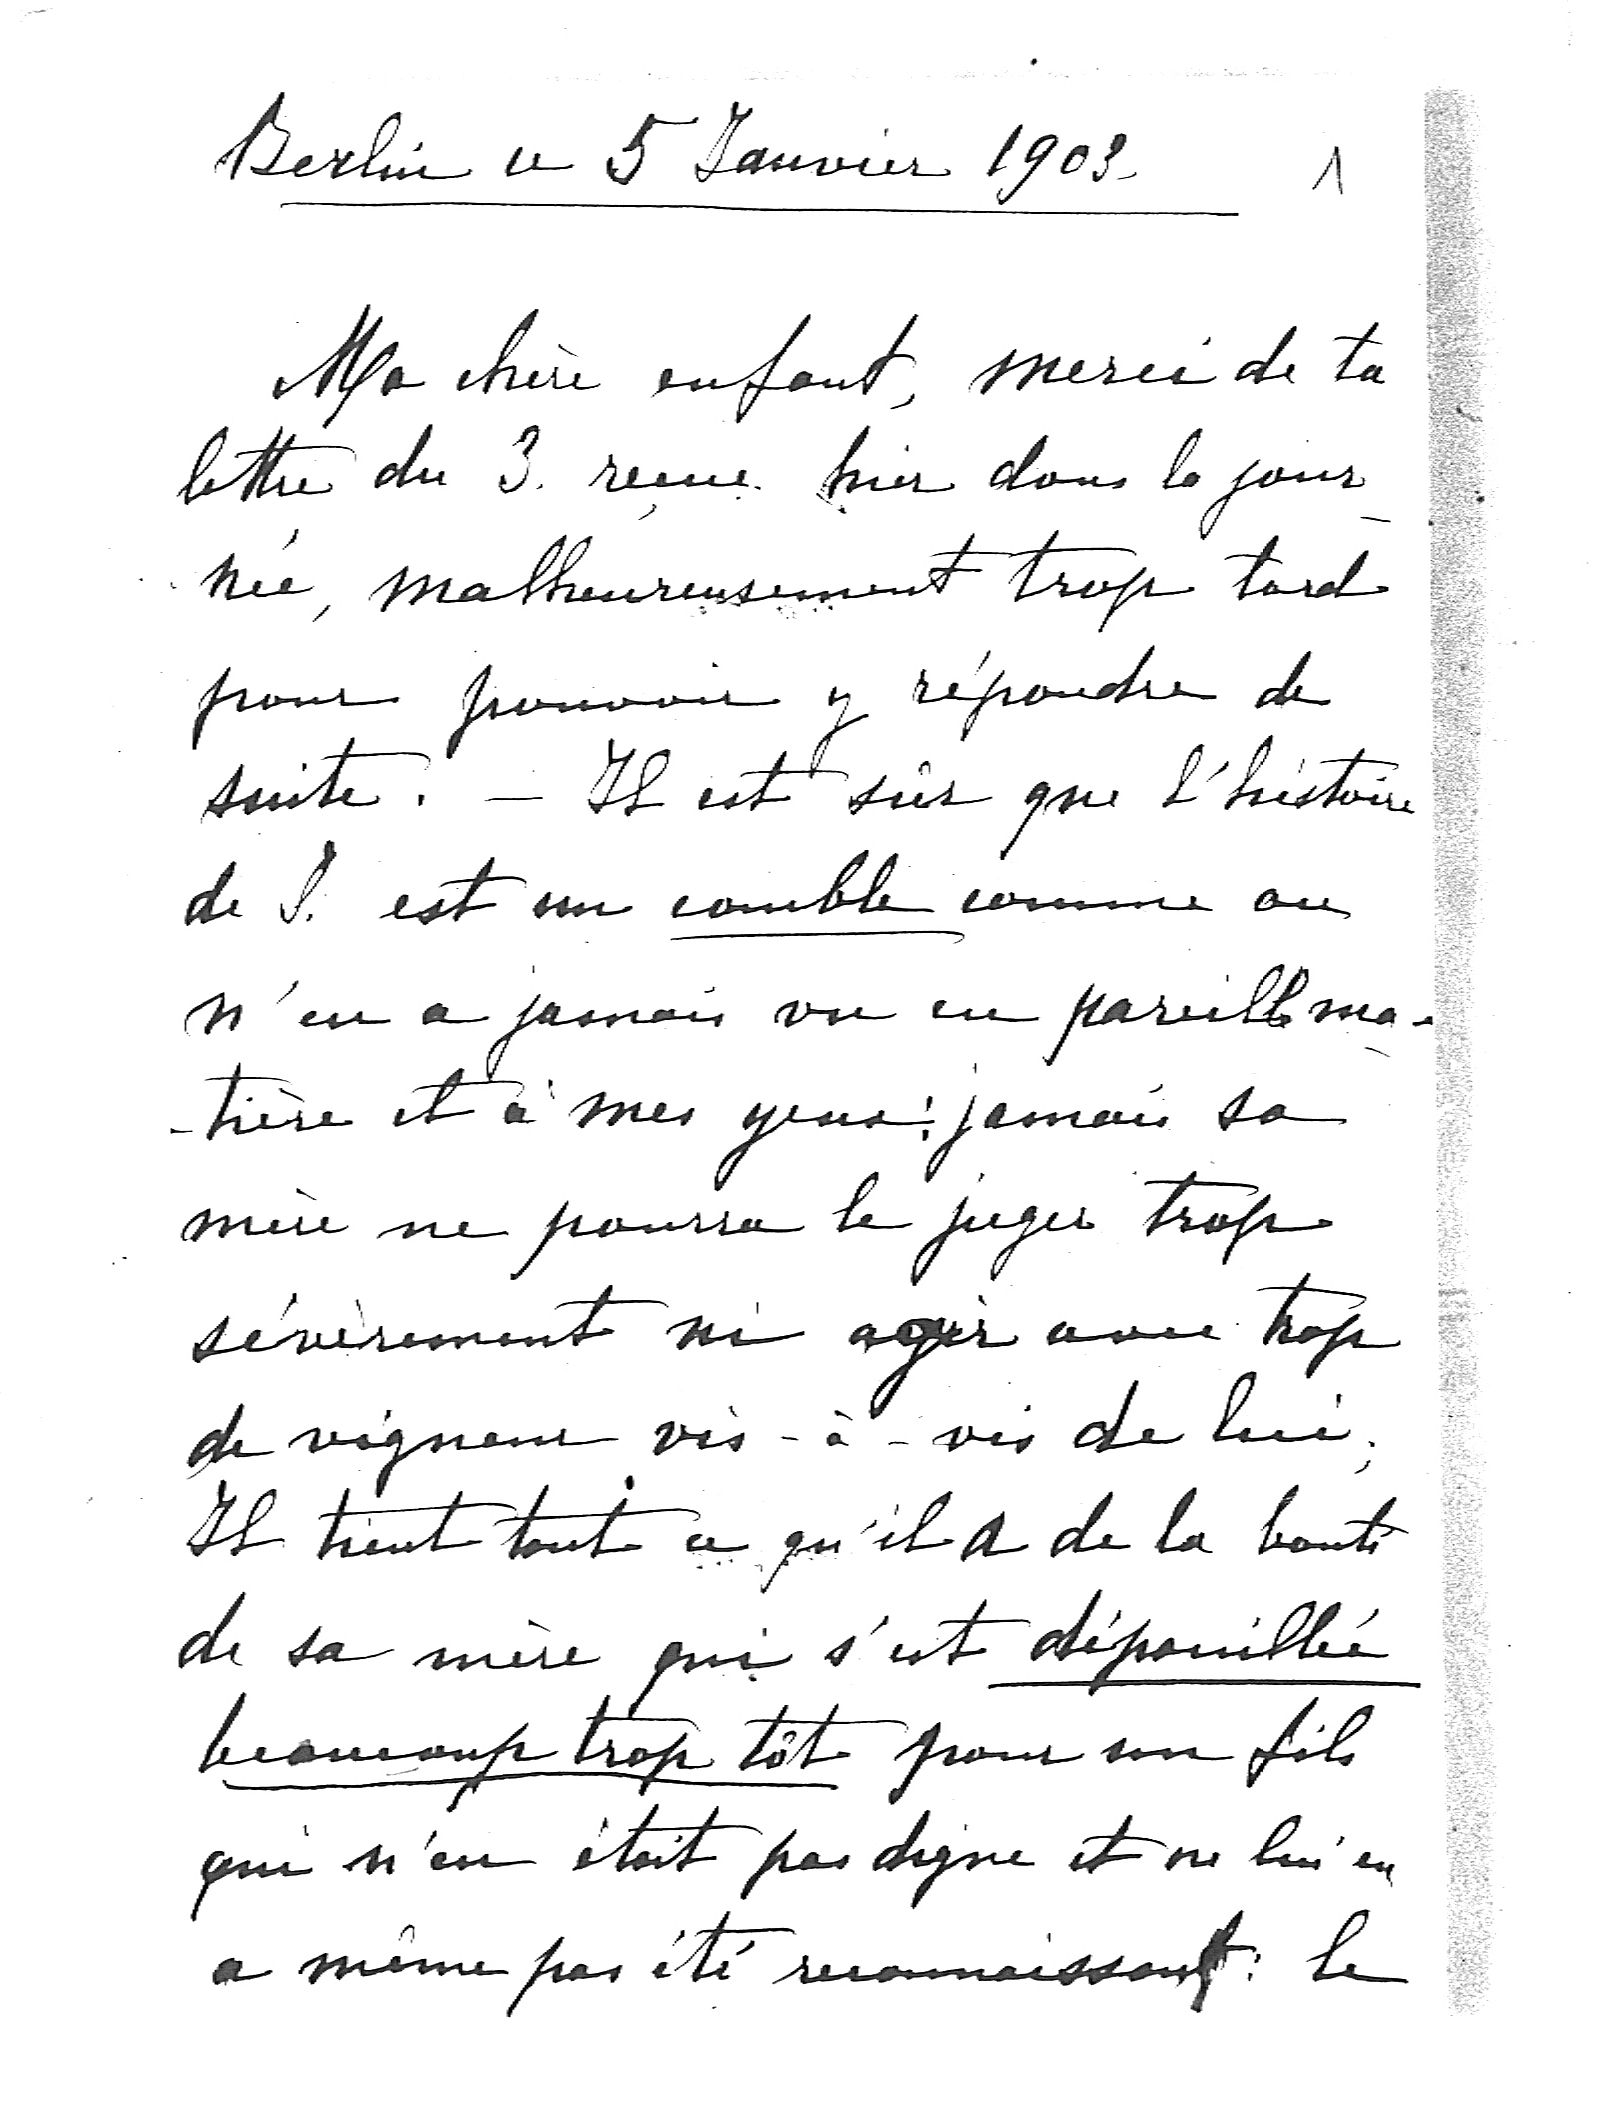 Berlin ce 5 Janvier 1903.
1
Ma chère enfant, merci de ta
lettre du 3. reçue hier dans la jour
née, malheureusement trop tard
pour pouvoir y répondre de
suite. — Il est sûr que l'histoire
de J. est un comble comme on
n'en a jamais vu en pareille ma-
-tière et à mes yeux: jamais sa
mère ne pourra le juger trop
sévèrement ni agir avec trop
de vigueur vis-à-vis de lui;
Il tient tout ce qu'il a de la bonté
de sa mère qui s'est dépouillée
beaucoup trop tôt pour un fils
qui n'en était pas digne et ne lui en
a même pas été reconnaissant: le